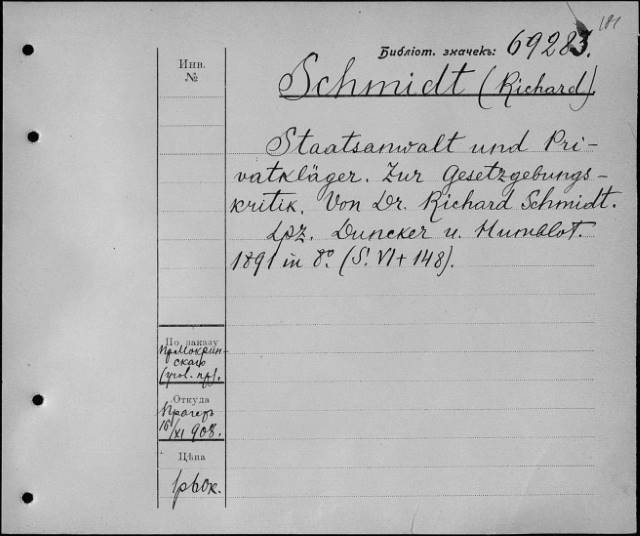 181
Библіот. значекъ: 69283.
Инв.
№
Schmidt (Richard).
Staatsanwalt und Pri-
vatkläger. Zur Gesetzgebungs-
kritik. Von Dr. Richard Schmidt.
Lpz. Duncker u. Humblot.
1891 in 8° (S. VI + 148).
По заказу
пр Мокрин-
скаго
(угол. пр).
Откуда
Прагеръ
16/XI 908.
Цѣна
1р60к.